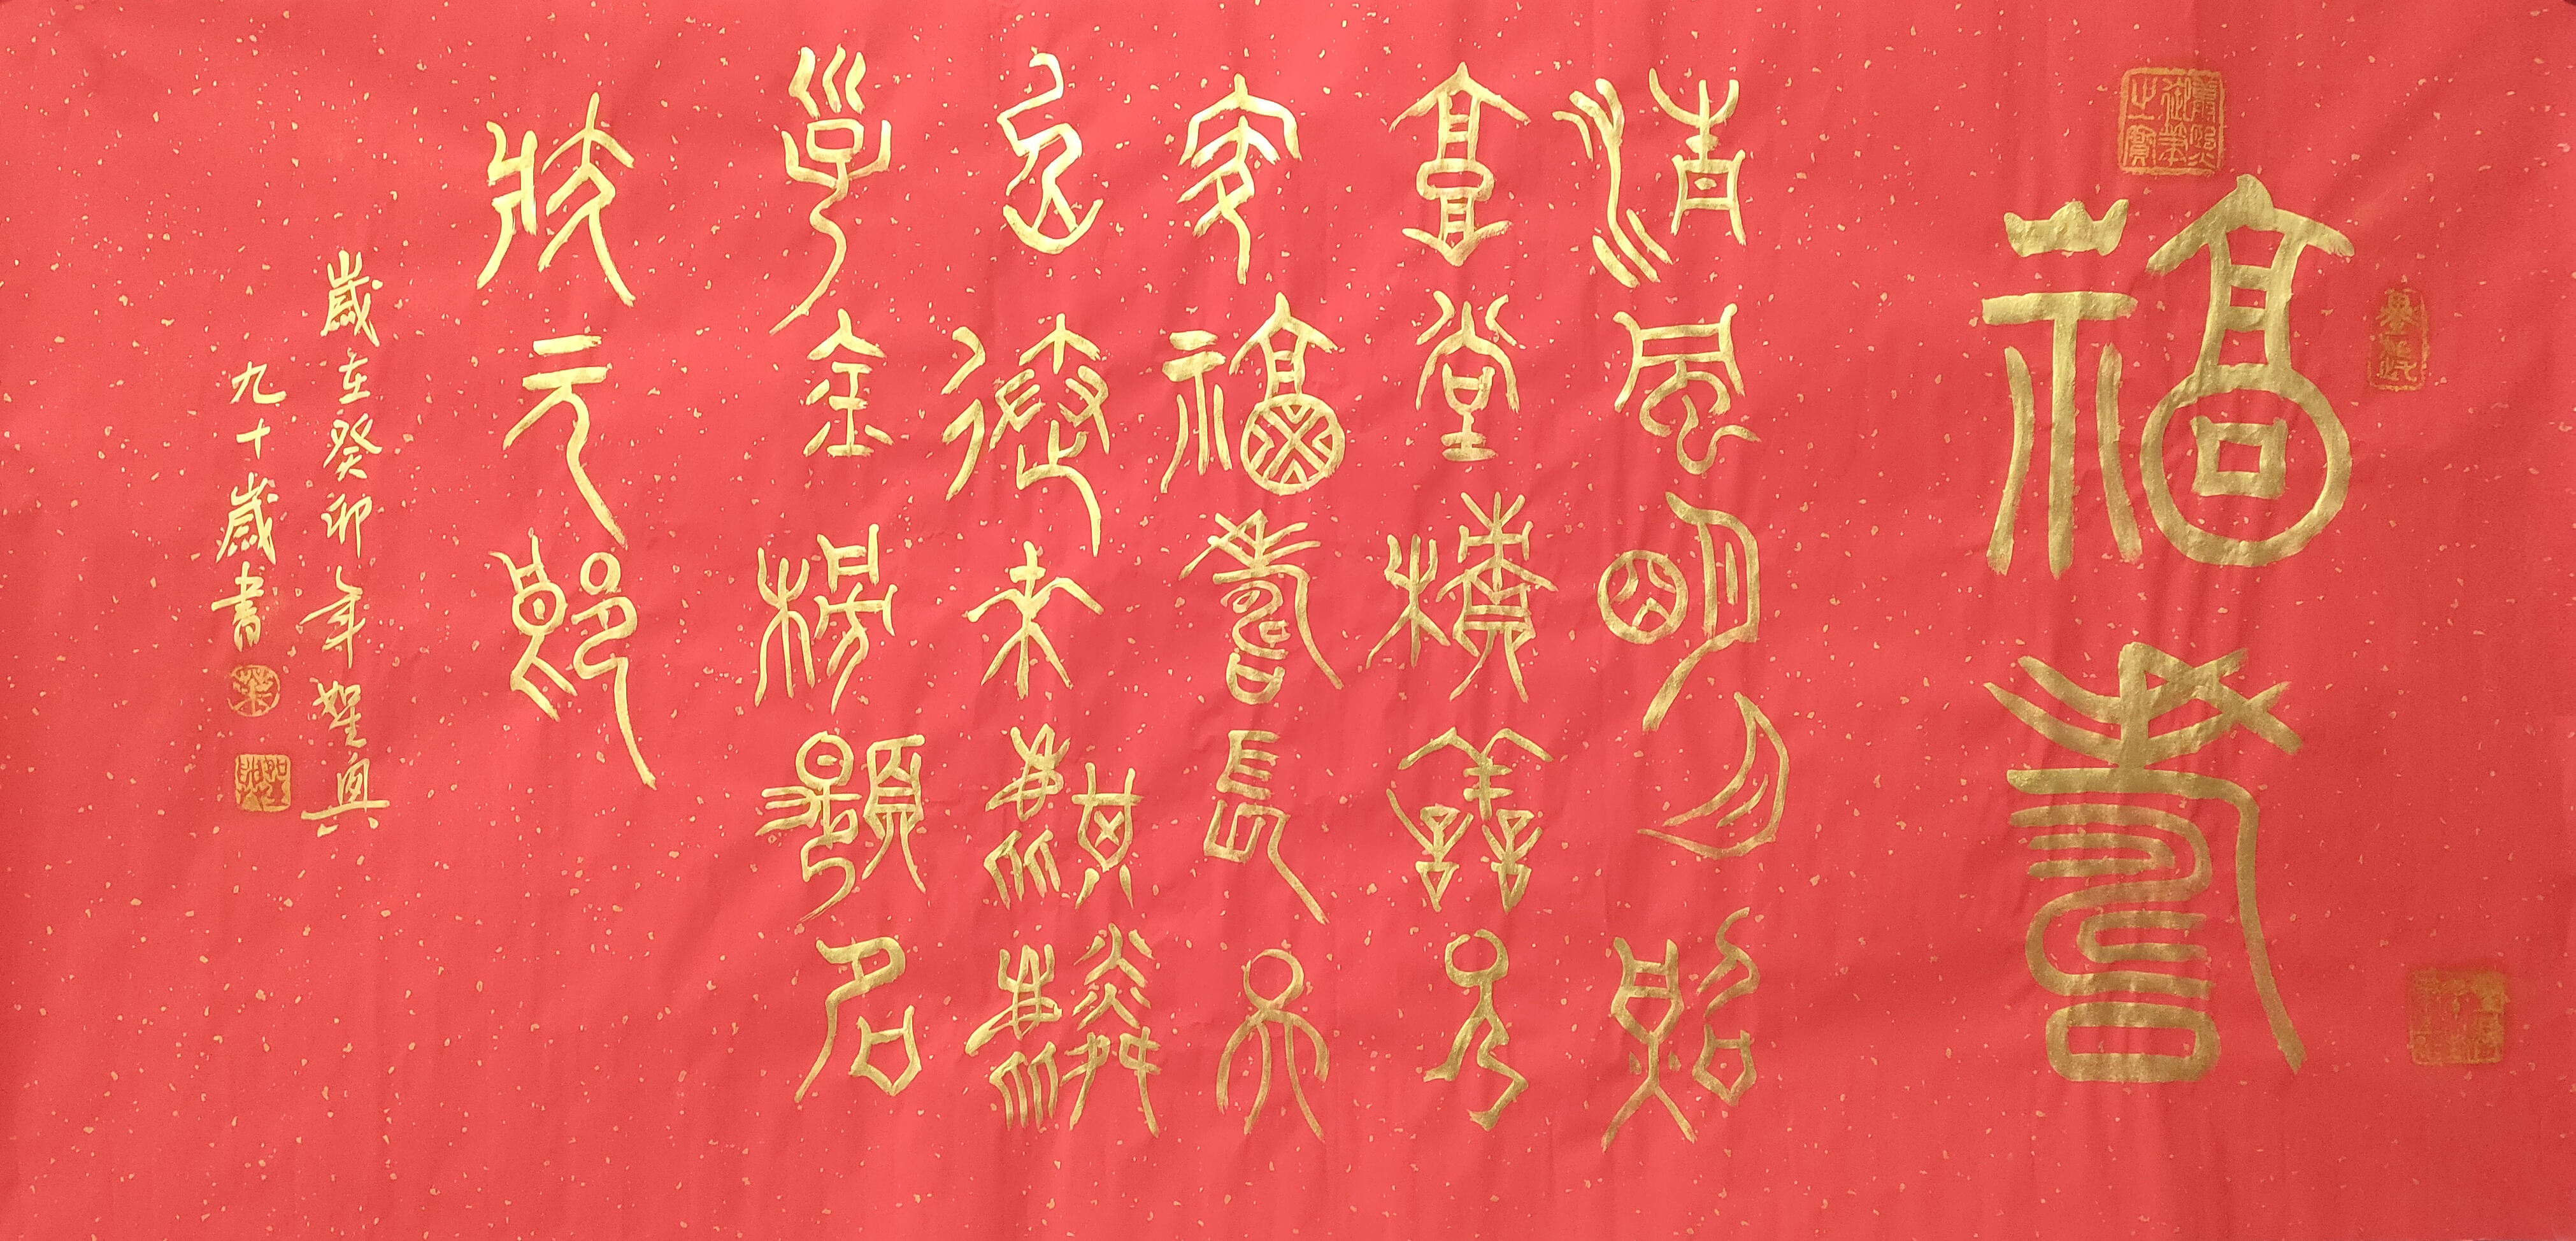 福壽
清風明月照
高堂積善人
家福壽長天
送來麒麟
子金榜題名
狀元郎
歲在癸卯年興
九十歲書